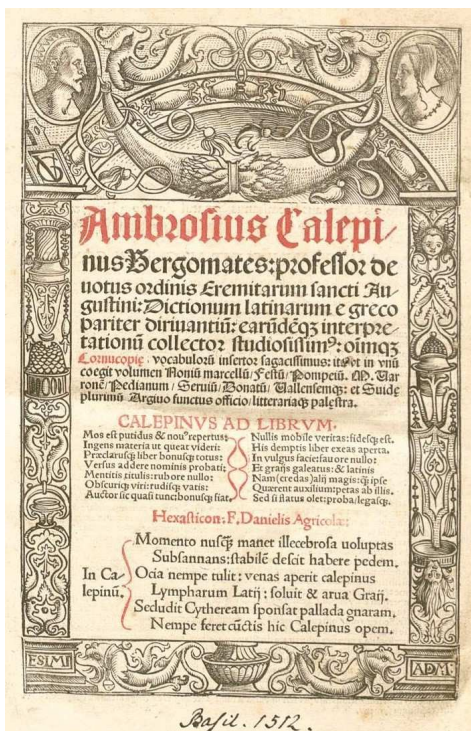 Ambrosius Calepi/
nus Bergomates: professor de
uotus ordinis Eremitarum sancti Au-
gustini: Dictionum latinarum e greco
pariter diriuantiū: earūdēqꝫ interpre-
tationū collector studiosissimꝰ: oīmqꝫ
Cornucopie. vocabulorū insertor sagacissimus: ita vt in vnū
coegit volumen Noniū marcellū/ Festū/ Pompeiū. M. Var
ronē/ Pedianum/ Seruiū/ Donatū/ Vallensemqꝫ: et Suidę
plurimū Argiuo functus officio/ litterariaqꝫ palęstra.
CALEPINVS AD LIBRVM.
Mos est putidus & nouꝰ repertus:
Ingens materia ut queat videri:
Præclarusqꝫ liber bonusqꝫ totus:
Versus addere nominis probati:
Mentitis titulis: rubore nullo:
Obscuriqꝫ viri: rudisqꝫ vatis:
Auctor sic quasi tunc: bonusqꝫ fiat.
Nullis mobile veritas: fidesqꝫ est.
His demptis liber exeas aperta.
In vulgus facie: sauore nullo:
Et graijs galeatus: & latinis
Nam (credas) alijs magis: qꝫ ipse
Quærent auxilium: petas ab illis.
Sed si status olet: proba/ legasqꝫ.
Hexasticon: F. Danielis Agricolæ:
In Ca-
lepinū.
Momento nusqꝫ manet illecebrosa uoluptas
Subsannans: stabilē descit habere pedem.
Ocia nempe tulit: venas aperit calepinus
Lympharum Latij: soluit & arua Graij.
Secludit Cytheream sponsat pallada gnaram.
Nempe feret cūctis hic Calepinus opem.
ESIMI
ADM:
Basil. 1512.